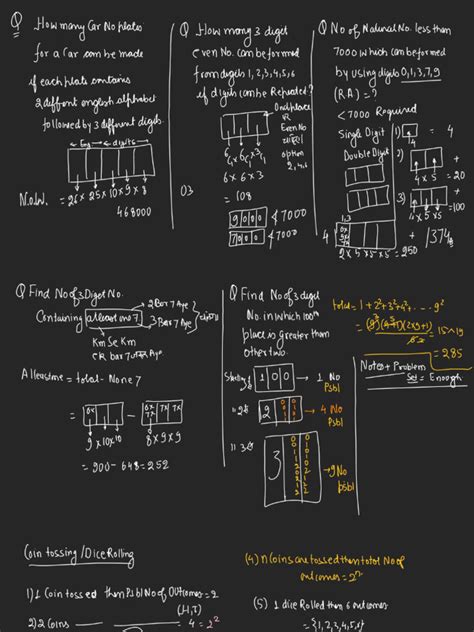 Q How many Car No plates
for a Car can be made
if each plate contains
2 different english alphabet
followed by 3 different digits.
Eng digits
N.O.W. = 26 x 25 x 10 x 9 x 8
468000
Q How many 3 digit
even No. can be formed
from digits 1, 2, 3, 4, 5, 6
if digits can be Repeated?
Even No
option
2, 4, 6
6C1 x 6C1 x 3C1
6 x 6 x 3
03
= 108
9000 ≮ 7000
7000 ≮ 7000
Q No of Natural No. less than
7000 which can be formed
by using digits 0, 1, 3, 7, 9
(R.A) = ?
< 7000 Required
Single Digit 1) = 4
4
+
Double Digit 2)
4 x 5 = 20
+
3)
4 x 5 x 5 = 100
+
1,3
4)
2 x 5 x 5 x 5 = 250
374
Q Find No of 3 Digit No.
Containing atleast one 7
2 Bar 7 Aye
3 Bar 7 Aye
Km Se Km
ek bar 7 Aye
Atleast one = total - None 7
= 0x - 0x 7x 7x 7x
9 x 10 x 10 8 x 9 x 9
= 900 - 648 = 252
Q Find No of 3 digit
No. in which 100th
place is greater than
other two.
Starting 1 0 0 → 1 No
Psbl
" 2 → 4 No
Psbl
" 3 → 9 No
Psbl
total = 1 + 2² + 3² + 4² + ... 9²
= 15 x 19
= 285
Notes + Problem
Set = Enough
Coin tossing / Dice Rolling
1) 1 Coin tossed then Psbl No of Outcomes = 2
(H, T)
2) 2 Coins 4 = 2²
(4) n Coins are tossed then total No of
outcomes = 2ⁿ
(5) 1 dice Rolled then 6 outcomes
= {1, 2, 3, 4, 5, 6}